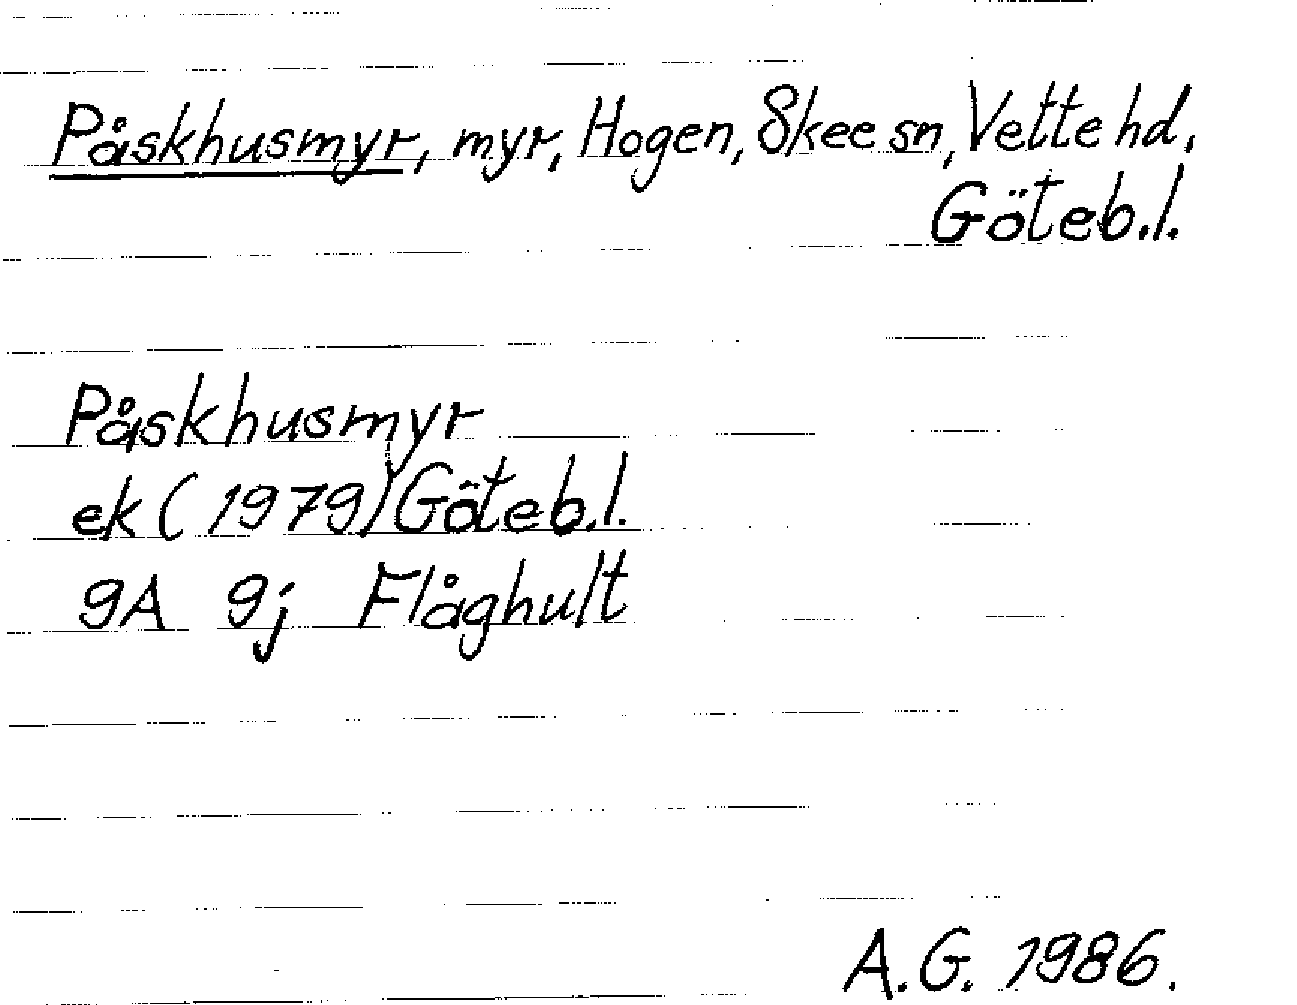 Påskhusmyr, myr, Hogen, Skee sn, Vette hd,
Göteb.l.
Påskhusmyr
ek (1979) Göteb.l.
9A 9j Flåghult
A.G. 1986.